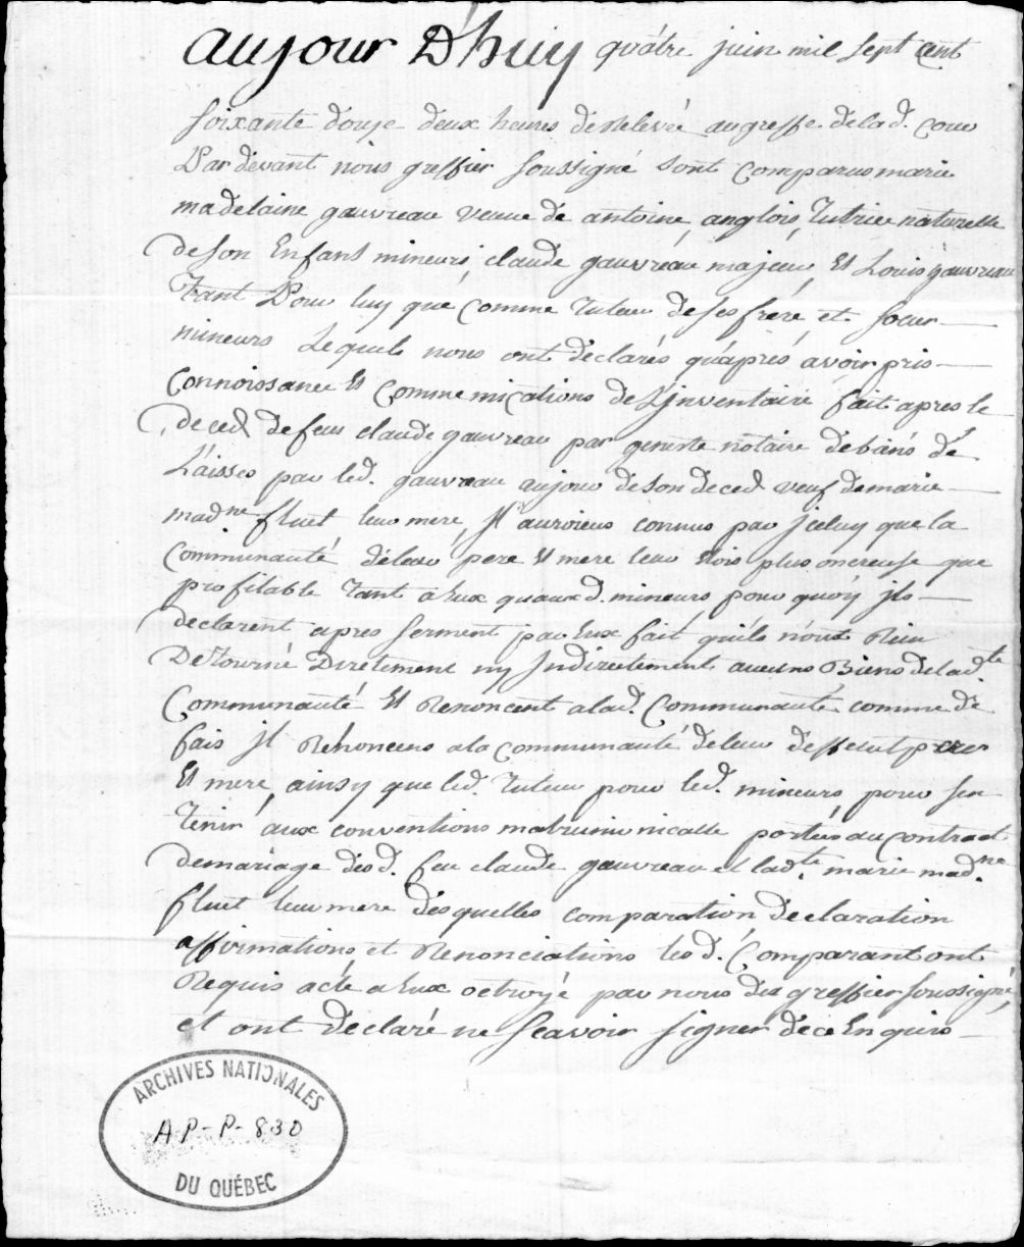 aujour D'huy quâtre juin mil sept cent
soixante douze deux heures de Relevée au greffe de lad. cour
Par devant nous greffier soussigné sont comparus marie
madelaine gauvreau veuve de antoine anglois, Tutrice naturelle
de son Enfant mineurs, claude gauvreau majeur Et Louis gauvreau
Tant Pour luy que comme tuteur de ses frere et soeur
mineurs Lequels nous ont déclarés qu'après avoir pris
connoissance Et commemications de L'jnventaire fait apres le
deced de feu claude gauvreau par genest notaire de biens dé
Laisses par led. gauvreau aujour de son deced veuf de marie
madne fluet leur mere, Jl auroiens connus par jceluy que la
communauté de leur pere Et mere leur Etois plus onereuse que
profitable Tant a Eux quaux d. mineurs pour quoy jls
declarent apres serment par Eux fait qu'ils n'ont Rien
Détourné Diretement ny Jndirectement aucuns Biens de lad.te
Communauté Et Renoncent a lad. Communauté comme de
fais jl Rehoncens a la communauté de leur deffeut pere
Et mere, ainsy que led. Tuteur pour led. mineurs, pour sen
Tenir aux conventions matrimonicalle portées au contract
de mariage desd. feu claude gauvreau et lad.te marie mad.ne
fluet leur mere desquelles comparation declaration
affirmations et Renonciations lesd. Comparant ont
Requis acte a Eux octroyé par nous dit greffier soussigné,
et ont déclaré ne scavoir signer de ce Enquis
ARCHIVES NATIONALES
AP-P-830
DU QUÉBEC